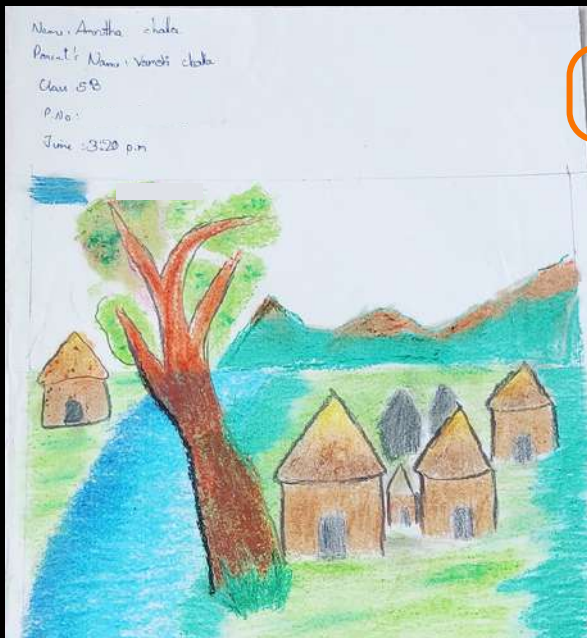 Name: Amrutha chaka
Parent's Name: Vamshi chaka
Class 5B
P.No:
Time: 3:20 p.m